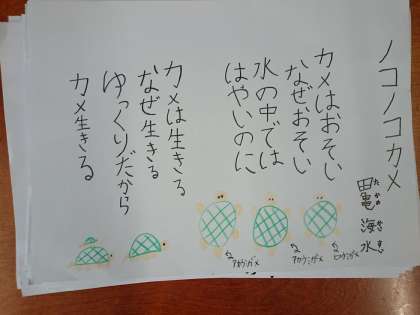 ノコノコカメ
田亀 海水
カメはおそい
なぜおそい
水の中では
はやいのに
カメは生きる
なぜ生きる
ゆっくりだから
カメ生きる
アカウミガメ